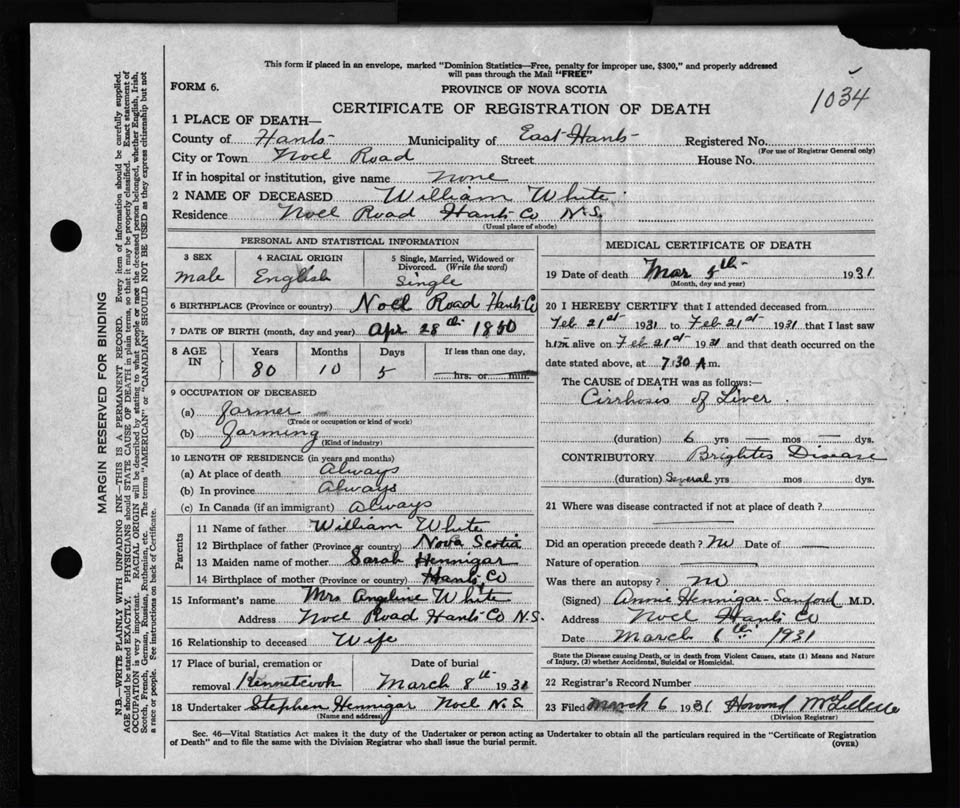 This form if placed in an envelope, marked "Dominion Statistics—Free, penalty for improper use, $300," and properly addressed
will pass through the Mail "FREE"
FORM 6.
PROVINCE OF NOVA SCOTIA
1034
CERTIFICATE OF REGISTRATION OF DEATH
1 PLACE OF DEATH—
County of Hants Municipality of East Hants Registered No.
(For use of Registrar General only)
City or Town Noel Road Street House No.
If in hospital or institution, give name none
2 NAME OF DECEASED William White
Residence Noel Road Hants Co N.S.
(Usual place of abode)
PERSONAL AND STATISTICAL INFORMATION
3 SEX 4 RACIAL ORIGIN 5 Single, Married, Widowed or
Divorced. (Write the word)
male English Single
6 BIRTHPLACE (Province or country) Noel Road Hants Co
7 DATE OF BIRTH (month, day and year) Apr 28th 1850
8 AGE IN Years Months Days If less than one day,
80 10 5 hrs. or min.
9 OCCUPATION OF DECEASED
(a) farmer
(Trade or occupation or kind of work)
(b) farming
(Kind of industry)
10 LENGTH OF RESIDENCE (in years and months)
(a) At place of death always
(b) In province always
(c) In Canada (if an immigrant) always
Parents
11 Name of father William White
12 Birthplace of father (Province or country) Nova Scotia
13 Maiden name of mother Sarah Hennigar
14 Birthplace of mother (Province or country) Hants Co
15 Informant's name Mrs Angeline White
Address Noel Road Hants Co N.S.
16 Relationship to deceased Wife
17 Place of burial, cremation or Date of burial
removal Kennetcook March 8th 1931
18 Undertaker Stephen Hennigar Noel N.S.
(Name and address)
MEDICAL CERTIFICATE OF DEATH
19 Date of death Mar 5th 1931
(Month, day and year)
20 I HEREBY CERTIFY that I attended deceased from
Feb 21st 1931 to Feb 21st 1931 that I last saw
him alive on Feb 21st 1931 and that death occurred on the
date stated above, at 7.30 A.m.
The CAUSE of DEATH was as follows:—
Cirrhosis of Liver.
(duration) 6 yrs — mos — dys.
CONTRIBUTORY Brightes Disease
(duration) Several yrs mos dys.
21 Where was disease contracted if not at place of death?
Did an operation precede death? no Date of —
Nature of operation —
Was there an autopsy? no
(Signed) Annie Hennigar-Sanford M.D.
Address Noel Hants Co
Date March 6th 1931
State the Disease causing Death, or in death from Violent Causes, state (1) Means and Nature
of Injury, (2) whether Accidental, Suicidal or Homicidal.
22 Registrar's Record Number
23 Filed March 6 1931 Howard
(Division Registrar)
Sec. 46—Vital Statistics Act makes it the duty of the Undertaker or person acting as Undertaker to obtain all the particulars required in the "Certificate of Registration
of Death" and to file the same with the Division Registrar who shall issue the burial permit.
(OVER)
MARGIN RESERVED FOR BINDING
N.B.—WRITE PLAINLY WITH UNFADING INK—THIS IS A PERMANENT RECORD. Every item of information should be carefully supplied.
AGE should be stated EXACTLY. PHYSICIANS should STATE CAUSE OF DEATH in plain terms, so that it may be properly classified. Exact statement of
OCCUPATION is very important. RACIAL ORIGIN will be described by stating to what people or race the deceased person belonged, whether English, Irish,
Scotch, French, German, Russian, Ruthenian, etc. The terms "AMERICAN" or "CANADIAN" SHOULD NOT BE USED as they express citizenship but not
a race or people. See instructions on back of Certificate.